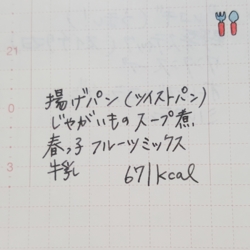 21
揚げパン(ツイストパン)
0
じゃがいものスープ煮
春っ子フルーツミックス
3
牛乳 671kcal